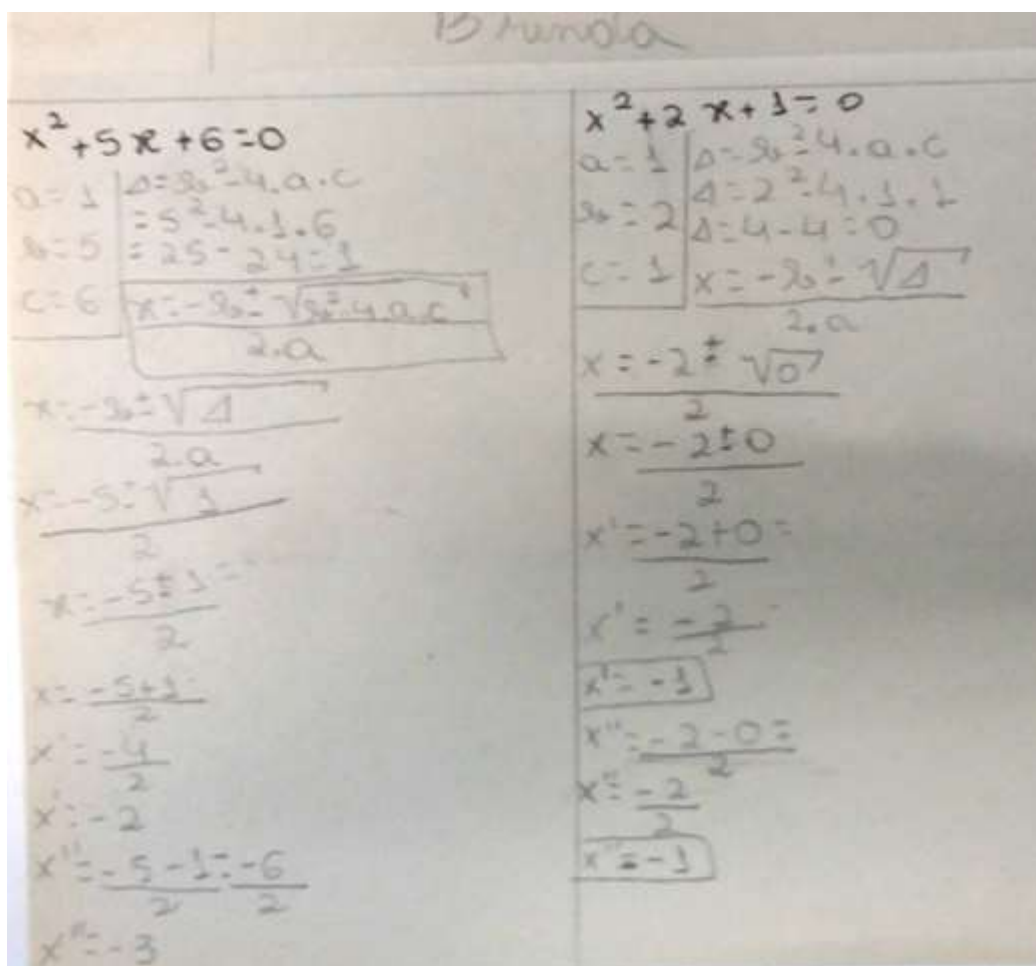 Brunda
x²+5x+6=0
a=1
b=5
c=6
Δ=b²-4.a.c
=5²-4.1.6
=25-24=1
x=-b±√b²-4.a.c
2.a
x=-b±√Δ
2.a
x=-5±√1
2
x=-5±1=
2
x=-5+1
2
x'=-4
2
x'=-2
x''=-5-1=-6
2 2
x''=-3
x²+2x+1=0
a=1
b=2
c=1
Δ=b²-4.a.c
Δ=2²-4.1.1
Δ=4-4=0
x=-b±√Δ
2.a
x=-2±√0
2
x=-2±0
2
x'=-2+0=
2
x'=-2
2
x'=-1
x''=-2-0=
2
x''=-2
2
x''=-1